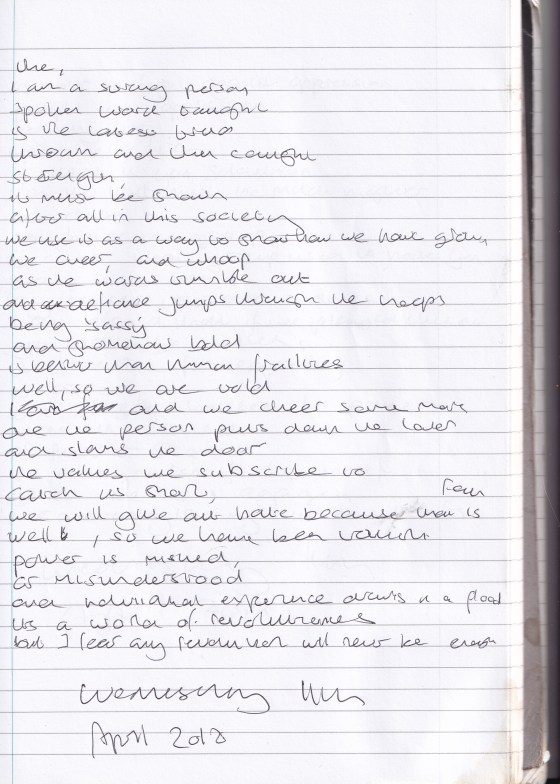 The,
I am a strong person
Spoken word taught
is the latest trend
thrown and then caught
Strength,
it must be shown
after all in this society
we use it as a way to show how we have grown
we cheer, and whoop
as the words tumble out
and defiance jumps through the hoops
being sassy
and somehow bold
is better than human frailties
well, so we are told
and we cheer some more
are the person puts down the lover
and slams the door
the values we subscribe to
catch us short,
Fear
we will give out hate because that is
well, so we have been
power is missed,
or misunderstood
and individual experience drowns in a flood
its a world of
but I fear any revolution will never be enough
Wednesday 11th
April 2018